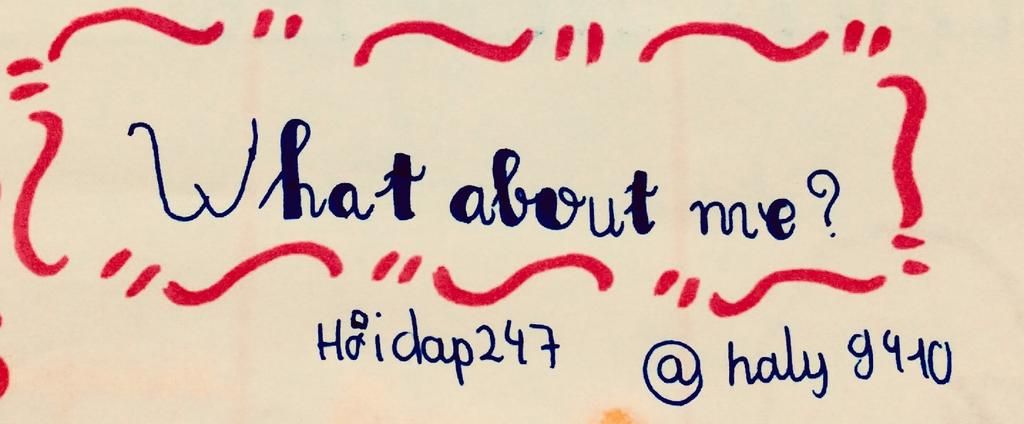 What about me?
Hỏidap247 @ haly 9410